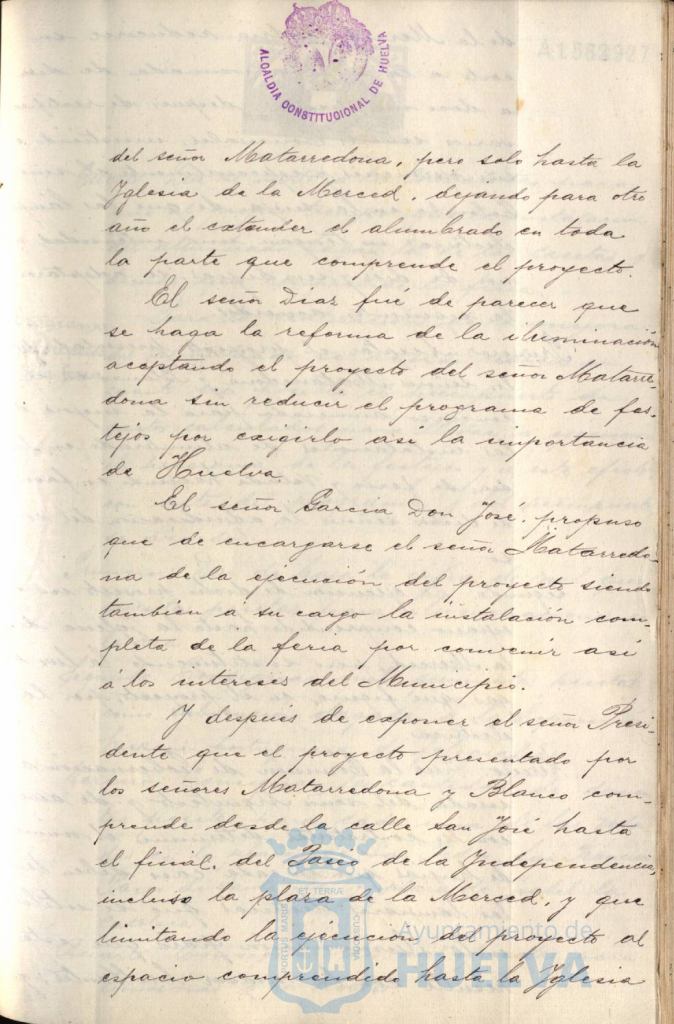 ALCALDIA CONSTITUCIONAL DE HUELVA
A1562927
del señor Matarredona, pero solo hasta la
Yglesia de la Merced, dejando para otro
año el extender el alumbrado en toda
la parte que comprende el proyecto.
El señor Diaz fué de parecer que
se haga la reforma de la iluminación
aceptando el proyecto del señor Matarre-
dona sin reducir el programa de fes-
tejos por exigirlo asi la importancia
de Huelva.
El señor Garcia Don José, propuso
que de encargarse el señor Matarredo-
na de la ejecución del proyecto siendo
tambien a su cargo la instalación com-
pleta de la feria por convenir asi
á los intereses del Municipio.
Y después de exponer el señor Presi-
dente que el proyecto presentado por
los señores Matarredona y Blanco com-
prende desde la calle San José hasta
el final, del Paseo de la Independencia,
incluso la plaza de la Merced, y que
limitando la ejecución del proyecto al
espacio comprendido hasta la Yglesia
ET TERRÆ
PORTUS MARIS
CUSTODIA
Ayuntamiento de
HUELVA